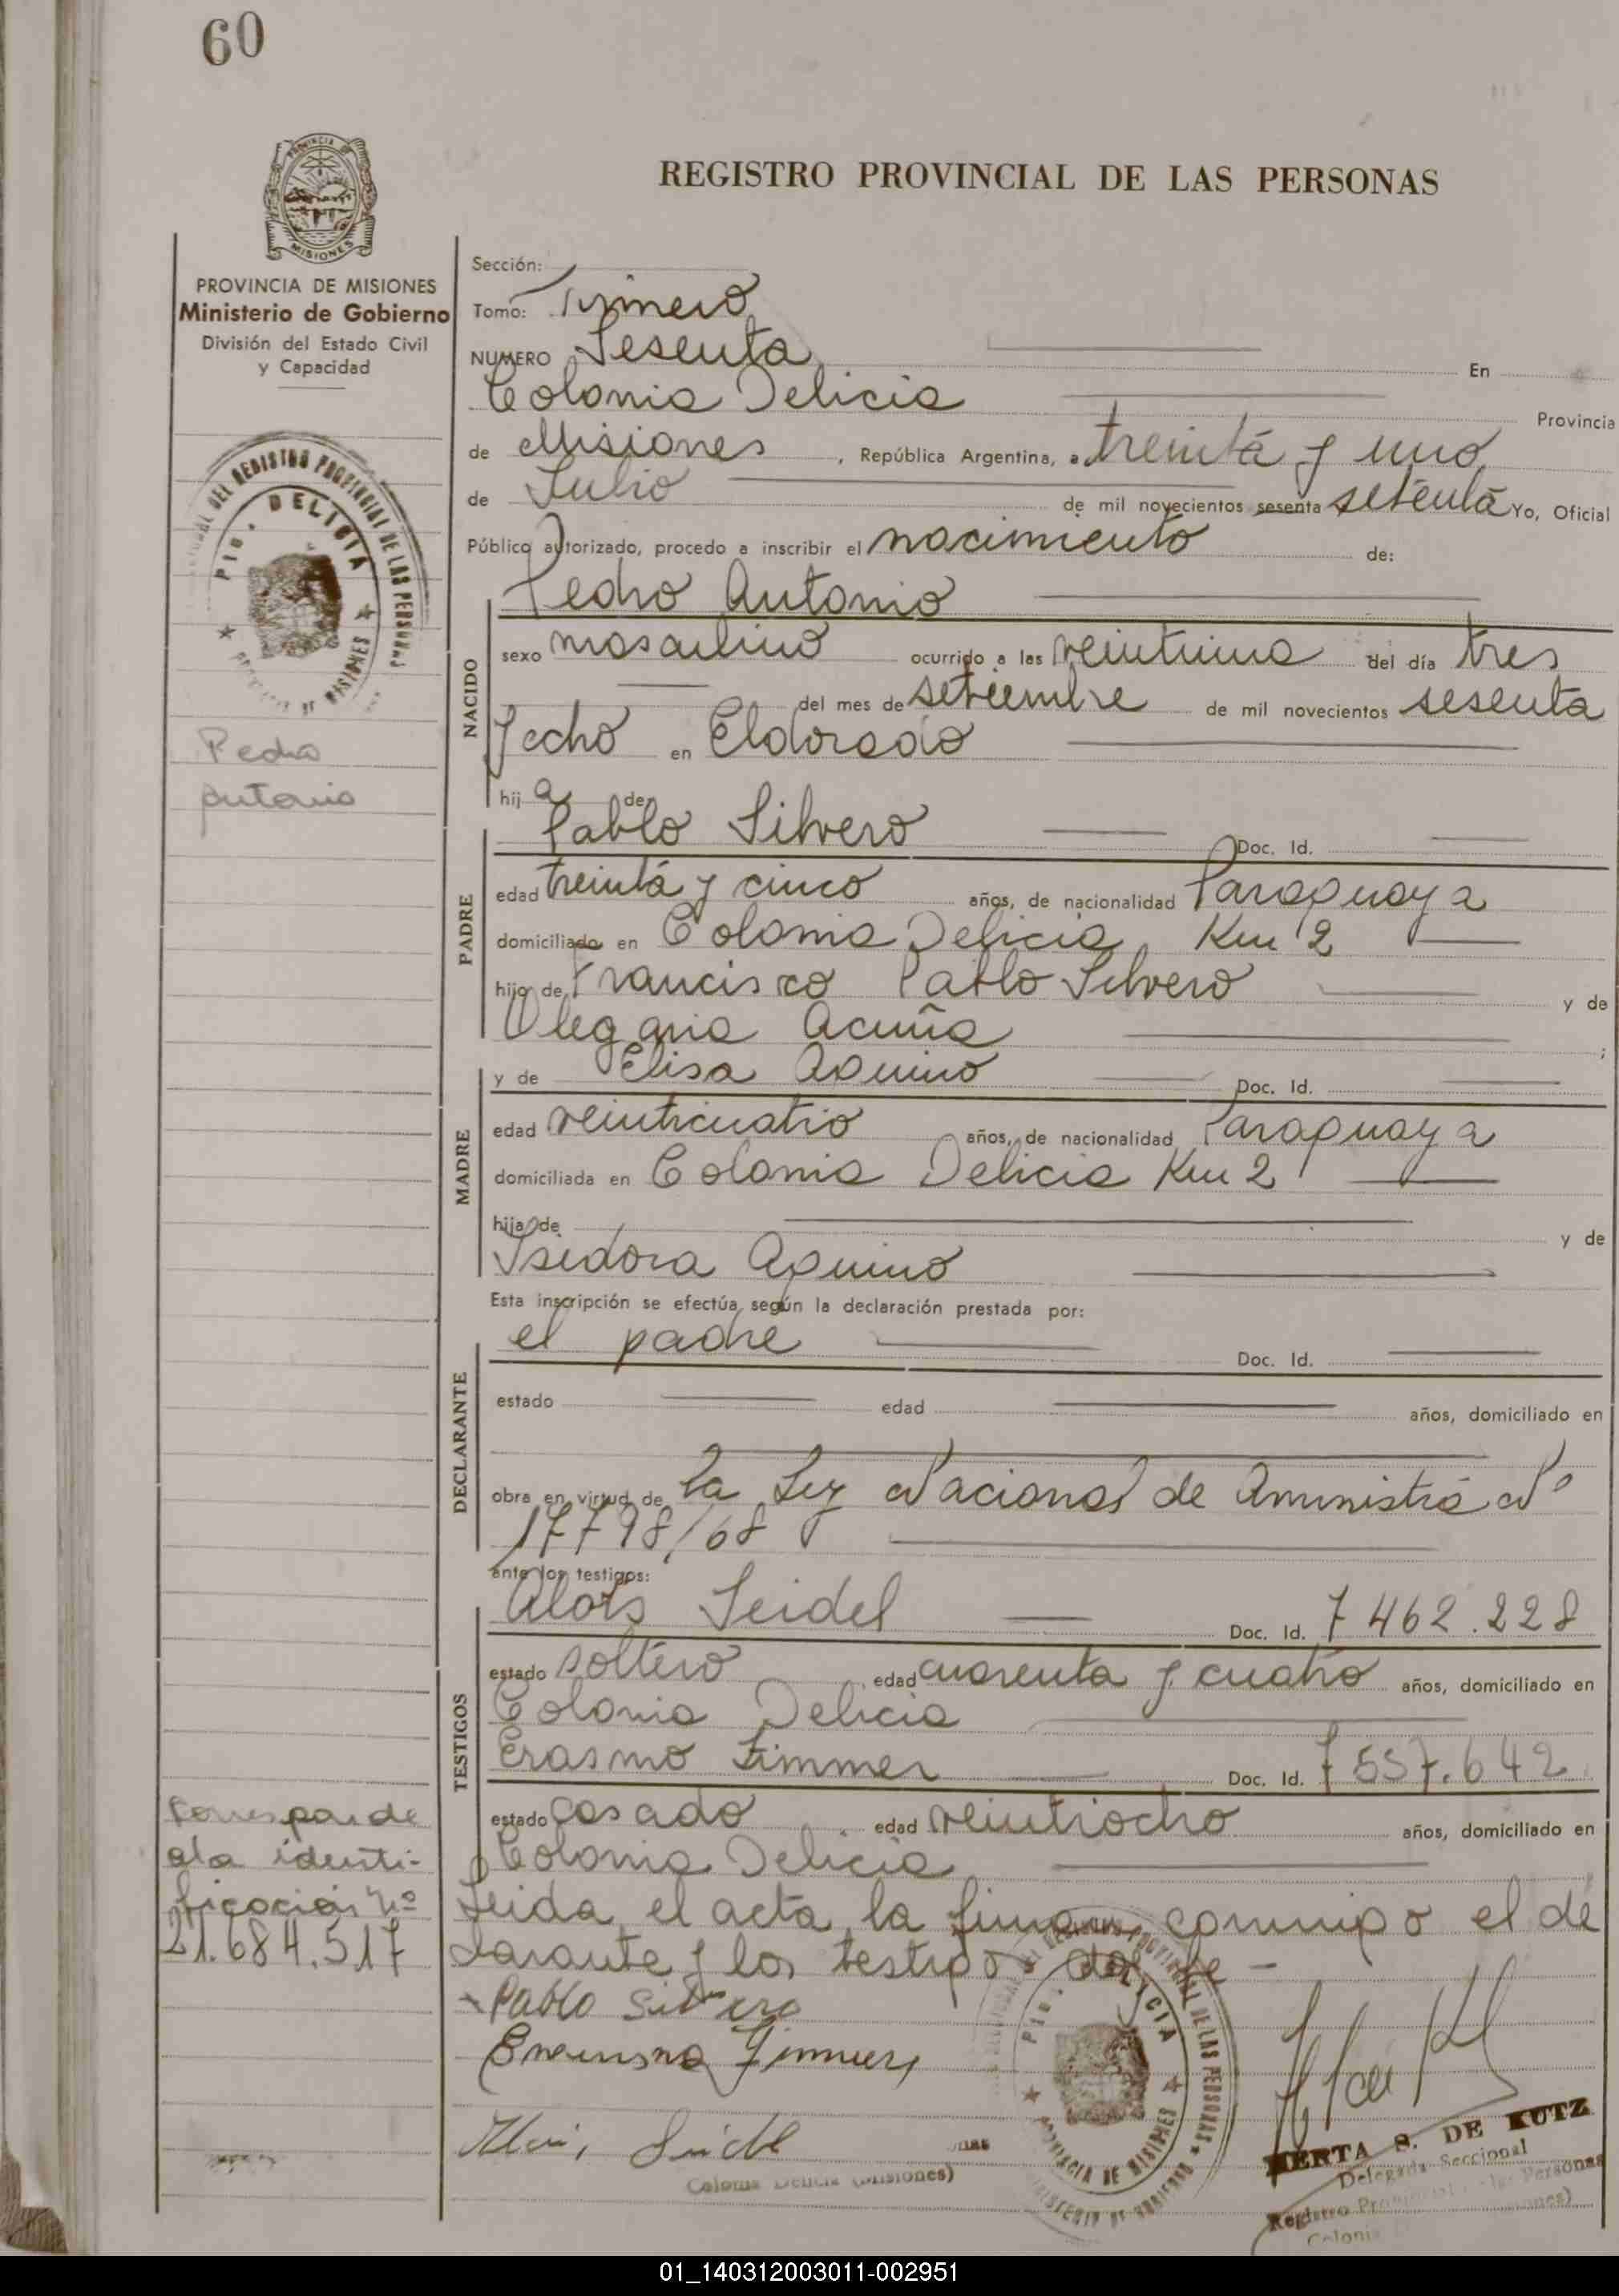 60
PROVINCIA
MISIONES
REGISTRO PROVINCIAL DE LAS PERSONAS
PROVINCIA DE MISIONES
Ministerio de Gobierno
División del Estado Civil
y Capacidad
Sección:
Tomo: Primero
NUMERO Sesenta En
Colonia Delicia Provincia
de Misiones , República Argentina, a treinta y uno
de Julio de mil novecientos sesenta setenta Yo, Oficial
Público autorizado, procedo a inscribir el nacimiento de:
DEL REGISTRO PROVINCIAL DE LAS PERSONAS
PTO. DELICIA
PROVINCIA DE MISIONES
Pedro
Antonio
NACIDO
Pedro Antonio
sexo masculino ocurrido a las veintiuna del día tres
del mes de setiembre de mil novecientos sesenta
y ocho en Eldorado
hij a de
PADRE
Pablo Silvero Doc. Id.
edad treinta y cinco años, de nacionalidad Paraguaya
domiciliado en Colonia Delicia Km 2
hijo de Francisco Pablo Silvero y de
Olegaria Acuña ;
MADRE
y de Elisa Aquino Doc. Id.
edad veinticuatro años, de nacionalidad Paraguaya
domiciliada en Colonia Delicia Km 2
hija de y de
Isidora Aquino
Esta inscripción se efectúa según la declaración prestada por:
DECLARANTE
el padre Doc. Id.
estado edad años, domiciliado en
obra en virtud de la Ley Nacional de Aministia Nº
17798/68
ante los testigos:
TESTIGOS
Alois Seidel Doc. Id. 7 462.228
estado soltero edad cuarenta y cuatro años, domiciliado en
Colonia Delicia
Erasmo Zimmer Doc. Id. 7 557.642
estado casado edad veintiocho años, domiciliado en
Colonia Delicia
Leida el acta la firman conmigo el de
clarante y los testigos doy fe -
Corresponde
a la identi-
ficación nº
21.684.517
Pablo Silvero
PTO. DELICIA
PROVINCIA DE MISIONES
DE LAS PERSONAS
Colonia Delicia (Misiones)
HERTA S. DE KUTZ
Delegada Seccional
Registro Provincial de las Personas
Colonia
01_140312003011-002951